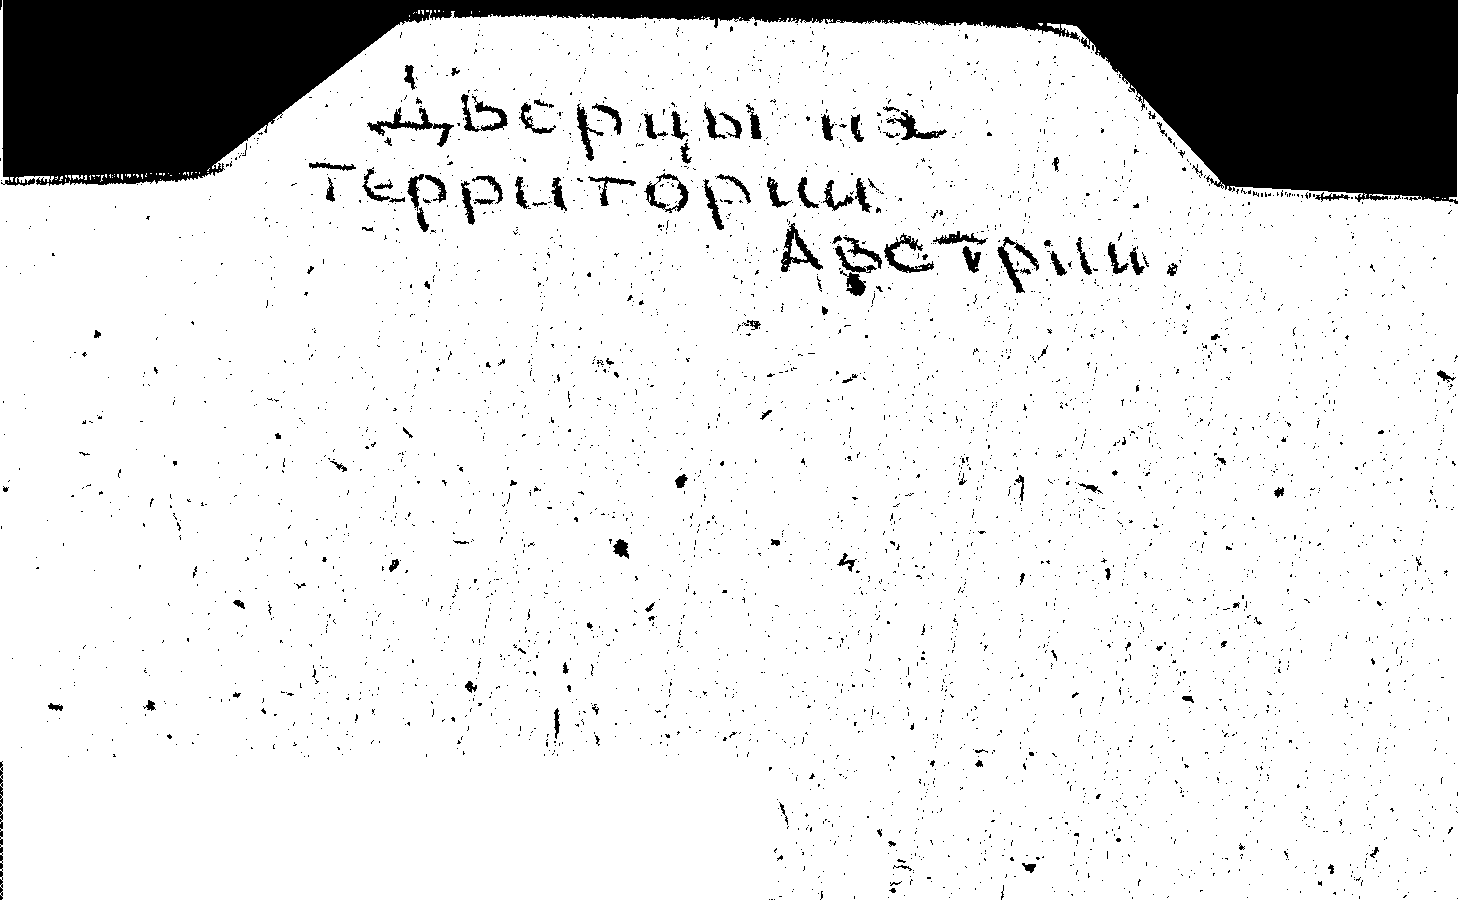 Дверцы на
территории
Австрии.